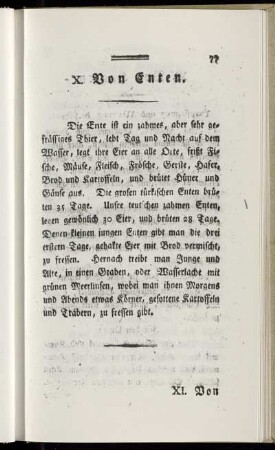 77
X. Von Enten.
Die Ente ist ein zahmes, aber sehr ge-
frässiges Thier, lebt Tag und Nacht auf dem
Wasser, legt ihre Eier an alle Orte, frißt Fi-
sche, Mäuse, Fleisch, Frösche, Gerste, Hafer,
Brod und Kartoffeln, und brütet Hüner und
Gänse aus. Die grosen türkischen Enten brü-
ten 35 Tage. Unsre teutschen zahmen Enten,
legen gewönlich 30 Eier, und brüten 28 Tage.
Denen kleinen jungen Enten gibt man die drei
erstern Tage, gehakte Eier mit Brod vermischt,
zu fressen. Hernach treibt man Junge und
Alte, in einen Graben, oder Wasserlache mit
grünen Meerlinsen, wobei man ihnen Morgens
und Abends etwas Körner, gesottene Kartoffeln
und Träbern, zu fressen gibt.
XI. Von